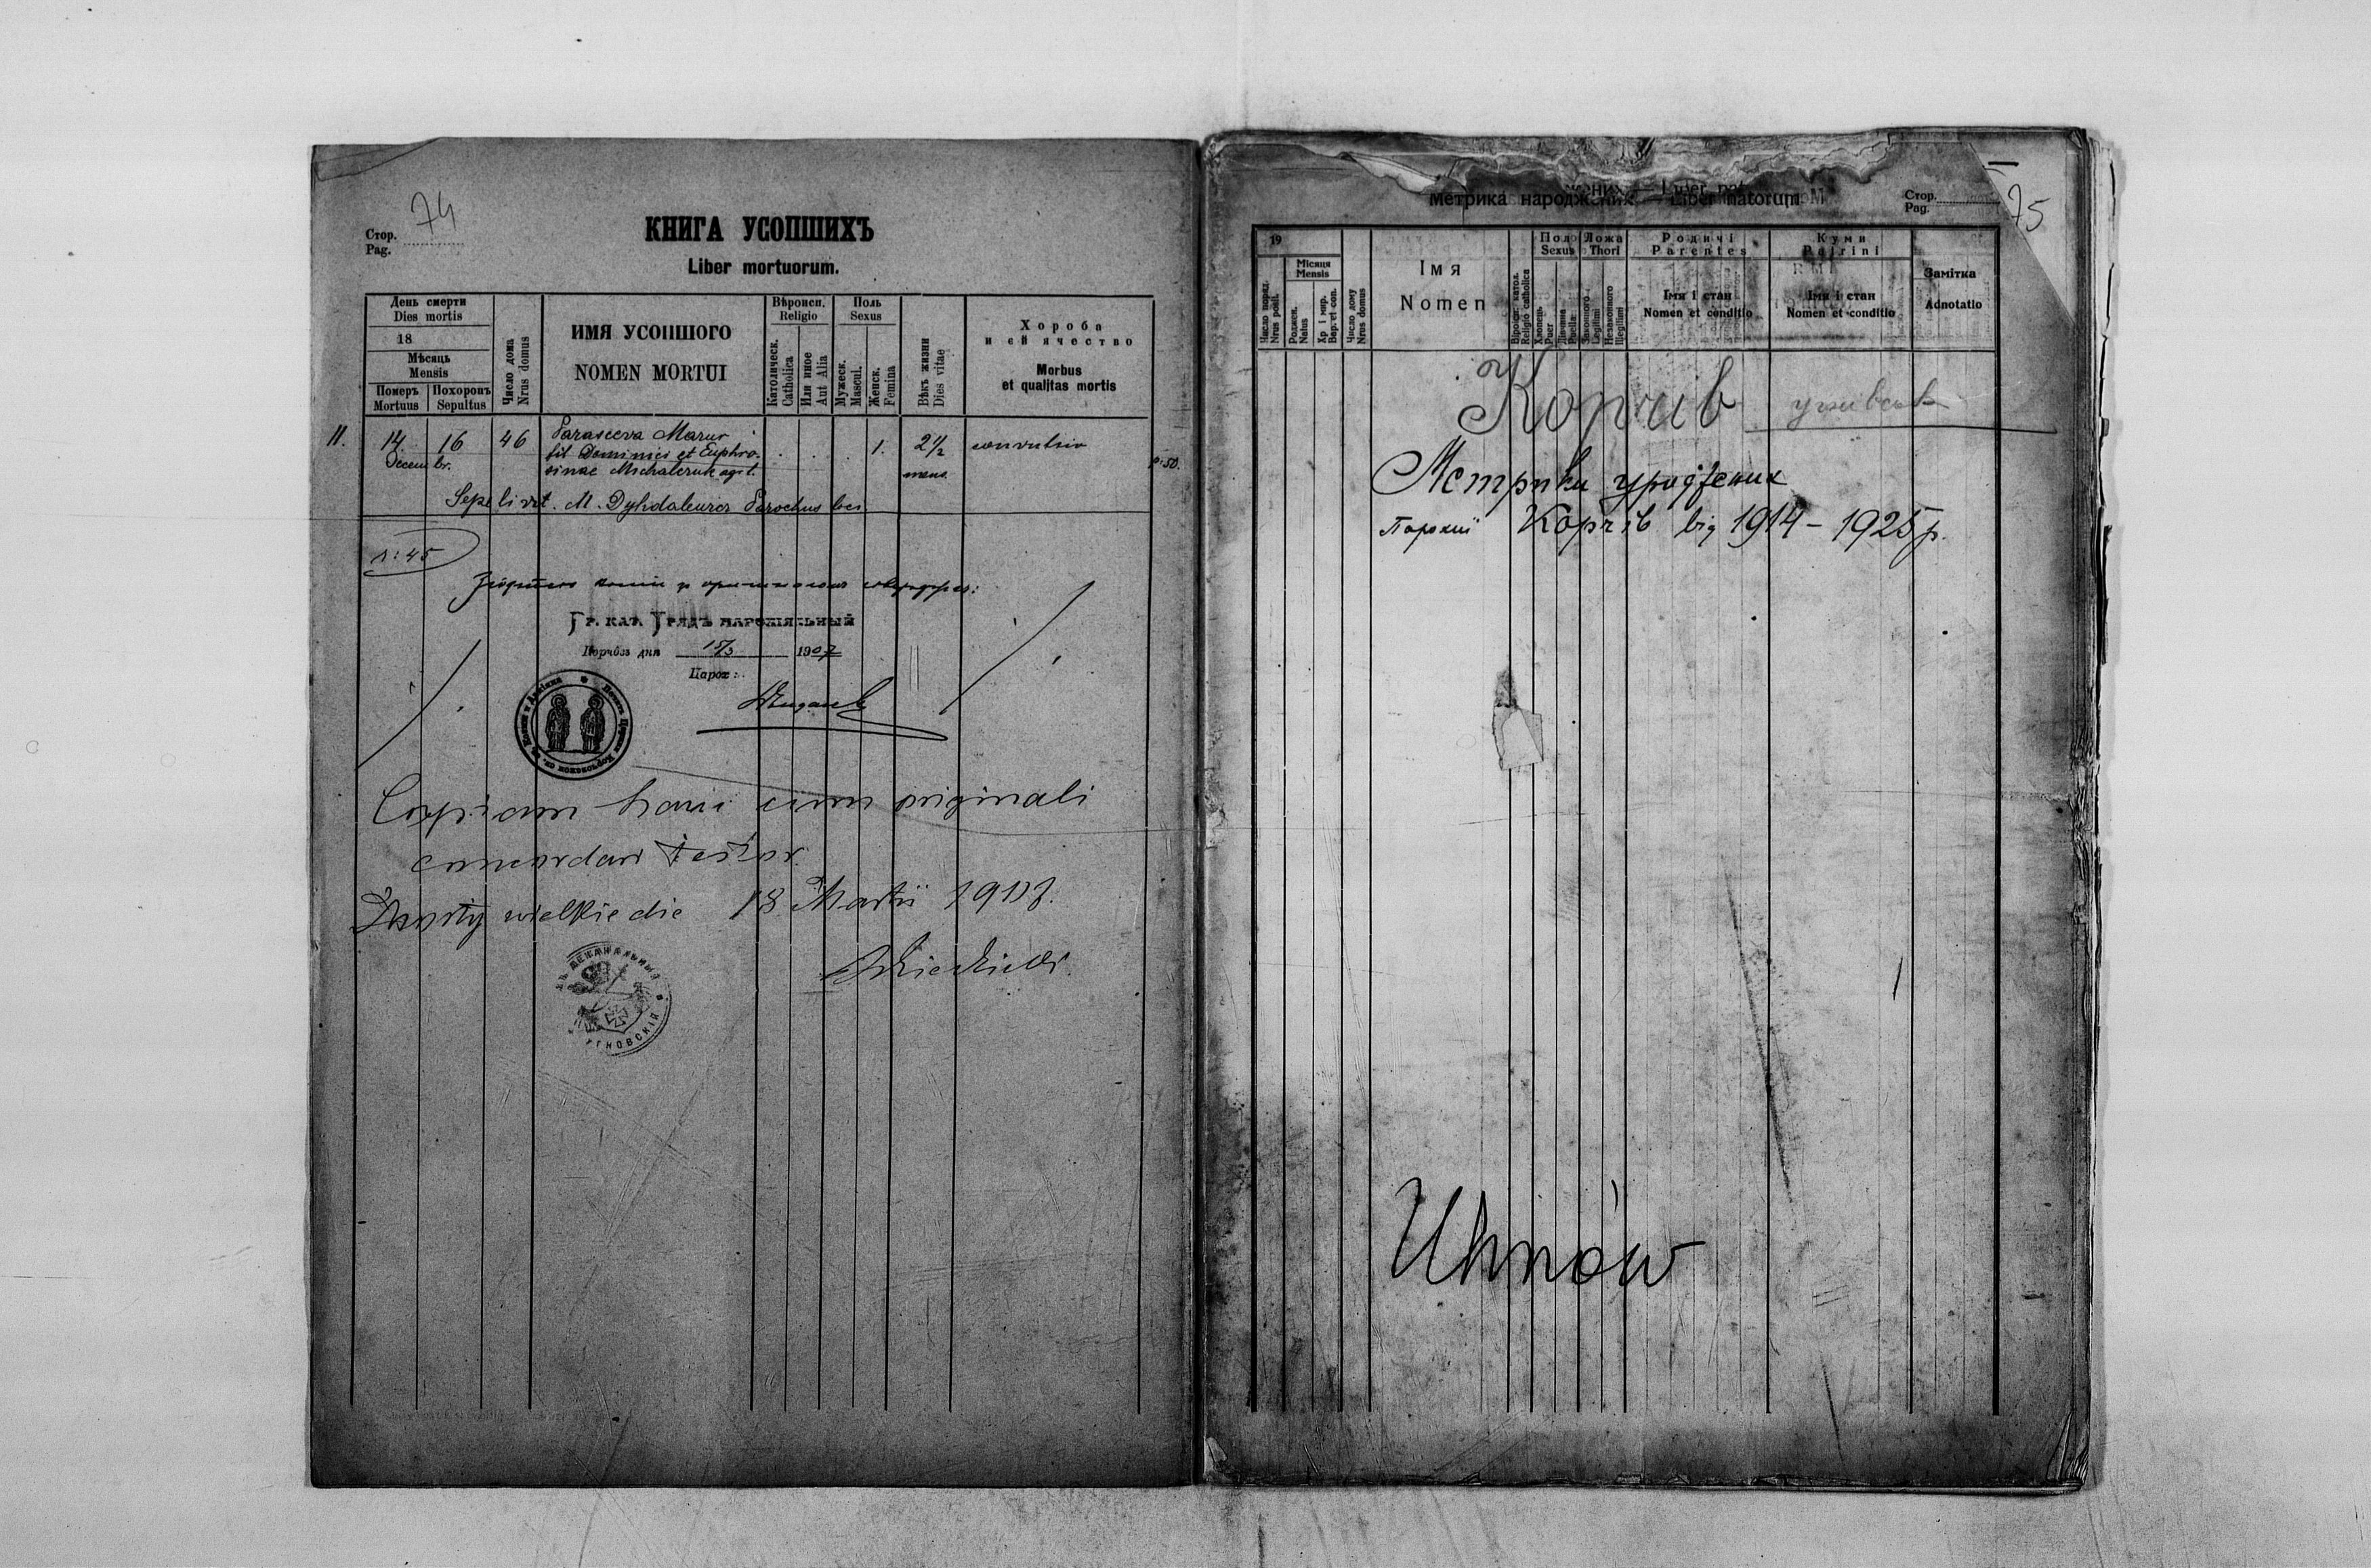 Стор.
Pag.
74
КНИГА УСОПШИХЪ
Liber mortuorum.
День смерти
Dies mortis
18
Мѣсяць
Mensis
Померъ
Mortuus
Похоронъ
Sepultus
Число дома
Nrus domus
ИМЯ УСОПШОГО
NOMEN MORTUI
Вѣроисп.
Religio
Католическ.
Catholica
Или иное
Aut Alia
Поль
Sexus
Мужеск.
Mascul.
Женск.
Femina
Вѣкъ жизни
Dies vitae
Хороба
и єй ячество
Morbus
et qualitas mortis
11. 14 16 46 Parasceva Mazur 1. 2 1/2 convulsio
Decembr. fil Dominici et Euphro-
sinae Michalczuk agrt. mens.
Sepelivit. M. Dyhdalewicz Parochus loci
1:45
Гр. кат. Урядъ парохіяльный
Корчôвъ дня 15/3 1907
Парох:
Copiam hanc cum originali
concordare testor.
Żwosty wielkie die 18 Martii 1907.
УГНОВСКІЙ
Метрика народжених — Liber natorum
Стор.
Pag.
75
19
Число поряд.
Nrus posit.
Місяця
Mensis
Роджен.
Natus
Хр і мир.
Bap. et con.
Число дому
Nrus domus
Імя
Nomen
Віроісп. катол.
Religio catholica
Пол
Sexus
Хлопець
Puer
Дівчина
Puella
Ложа
Thori
Законного
Legitimi
Незаконного
Illegitimi
Родичі
Parentes
Імя і стан
Nomen et conditio
Куми
Patrini
Імя і стан
Nomen et conditio
Замітка
Adnotatio
Корчів
Метрики уроджених
Парохії Корчів від 1914 – 1925 р.
Uhnów